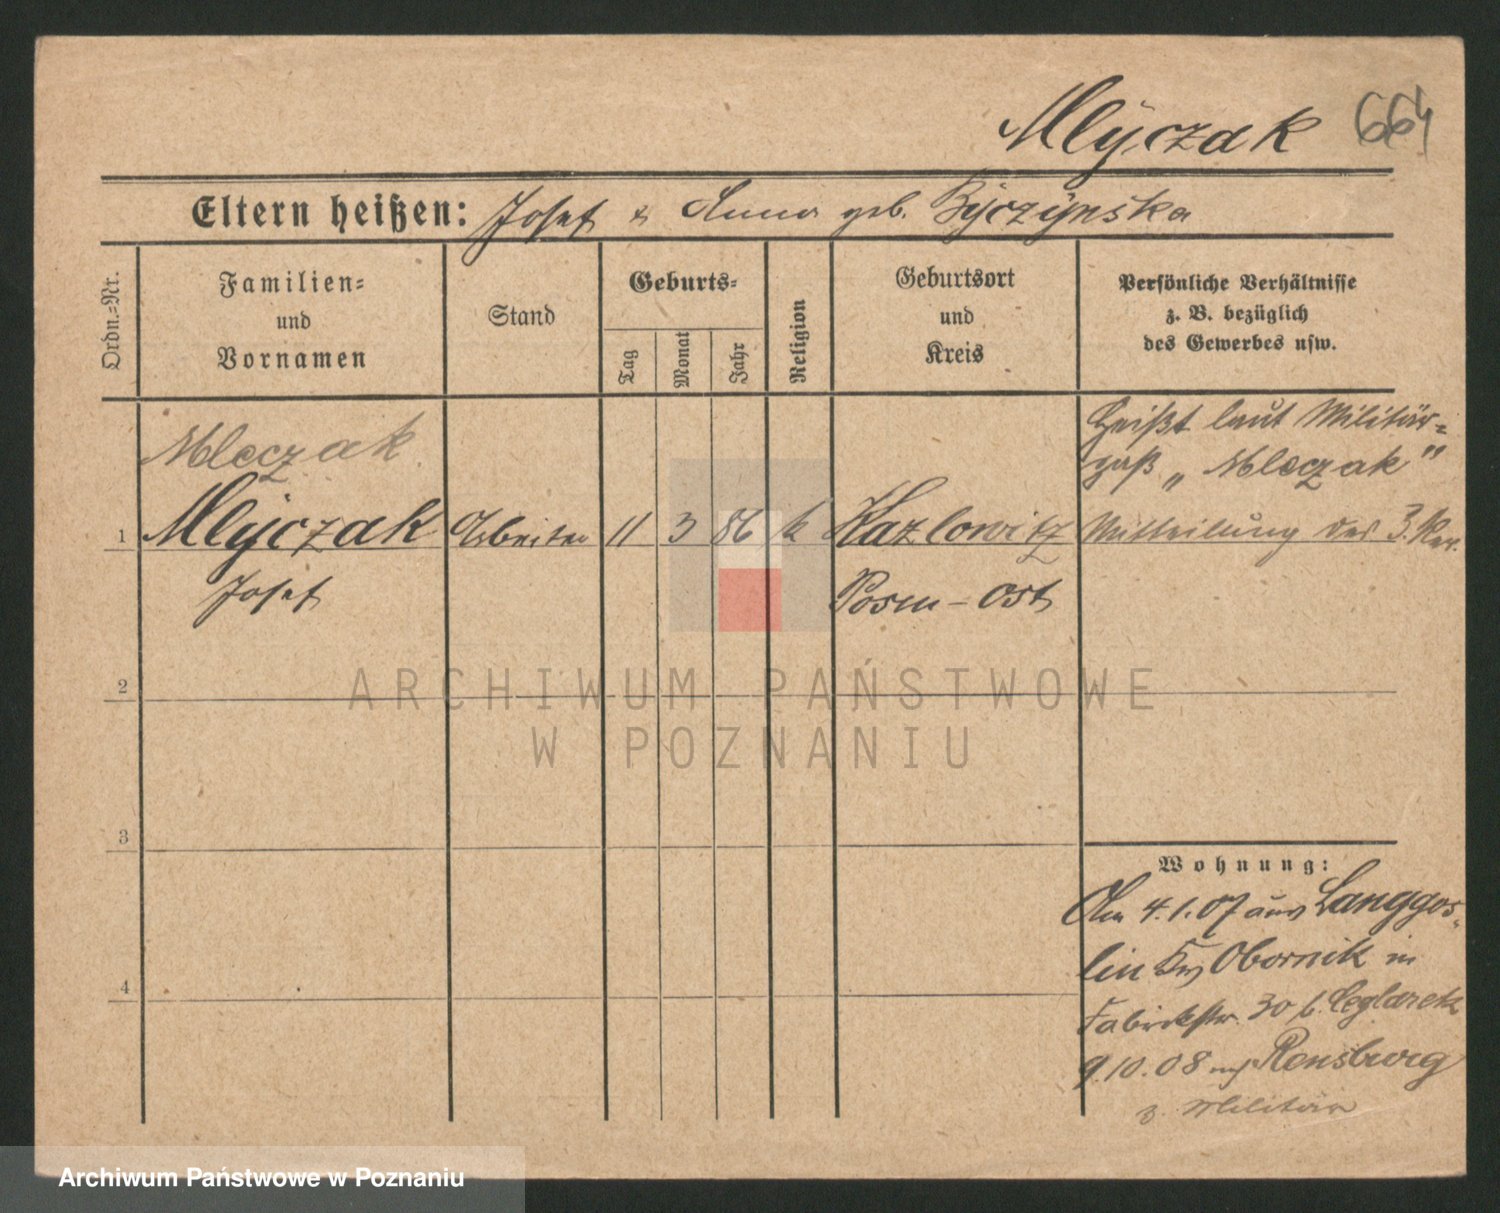 Mlyczak 664
Eltern heißen: Josef & Anna geb. Byczynska
Ordn.-Nr.
Familien-
und
Vornamen
Stand
Geburts-
Tag
Monat
Jahr
Religion
Geburtsort
und
Kreis
Persönliche Verhältnisse
z. B. bezüglich
des Gewerbes usw.
Mleczak
Heißt laut Militär-
paß „Mleczak"
1 Mlyczak Arbeiter 11 3 86 k Kazlowitz Mitteilung des 3. Rev.
Josef Posen-Ost
2
3
4
Wohnung:
Am 4.1.07 aus Langgos-
lin Krs Obornik in
Fabrikstr. 30 b. Ceglarek
9.10.08 nach Rensburg
z. Militär
ARCHIWUM PAŃSTWOWE
W POZNANIU
Archiwum Państwowe w Poznaniu